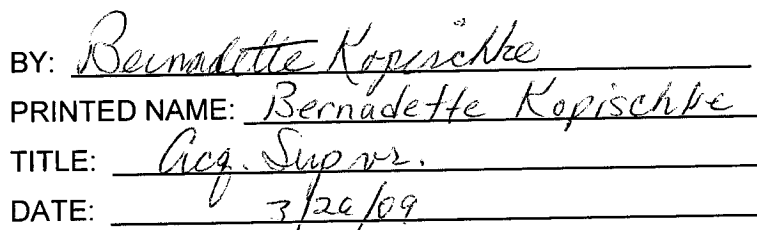 BY: Bernadette Kopischke
PRINTED NAME: Bernadette Kopischke
TITLE: Acq. Supvr.
DATE: 3/26/09